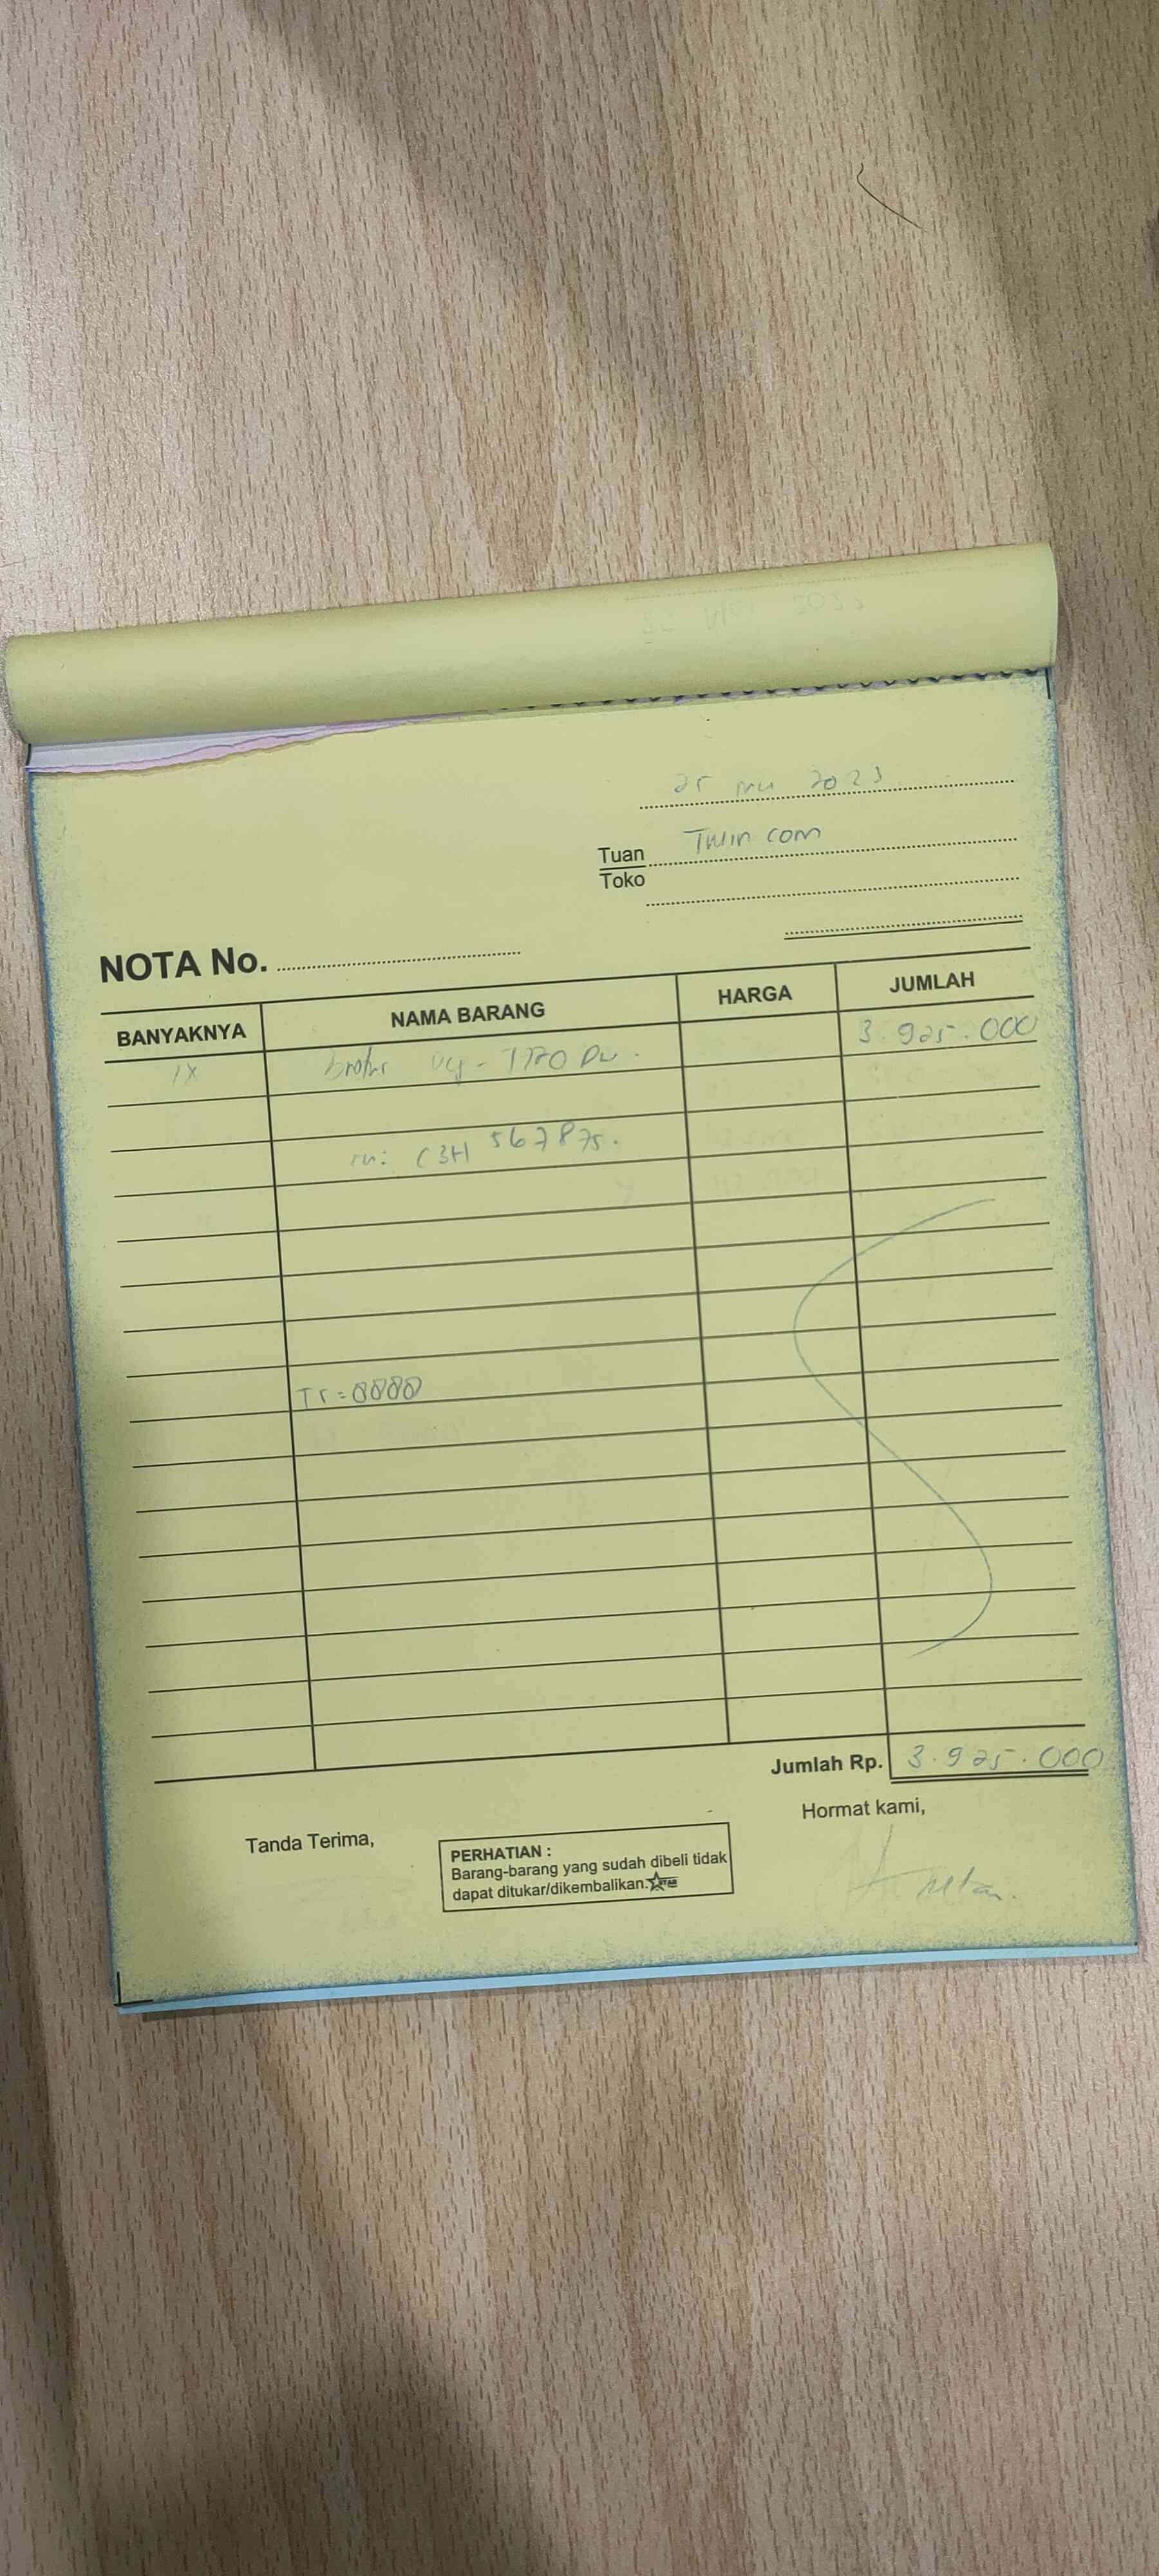 25 2023
Tuan Twincom
Toko
NOTA No.
BANYAKNYA NAMA BARANG HARGA JUMLAH
1X T720 DW. 3.925.000
sn: C3H 567875.
Tr=0000
Jumlah Rp. 3.925.000
Tanda Terima, Hormat kami,
PERHATIAN :
Barang-barang yang sudah dibeli tidak
dapat ditukar/dikembalikan. STAR